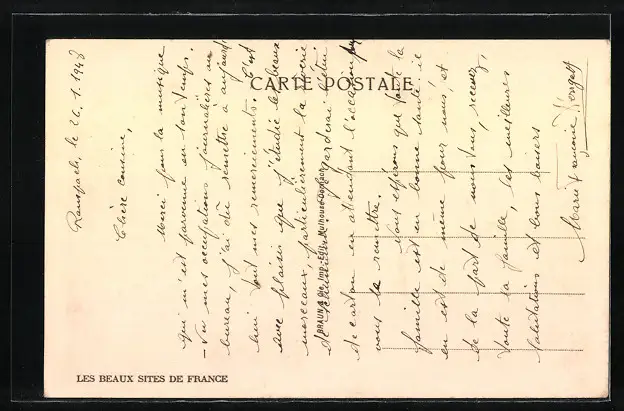 CARTE POSTALE
Ranspach, le 26.1.1948
Chère cousine,
Merci pour la musique
qui m'est parvenue en son temps.
- Vu mes occupations journalières au
bureau, j'ai dû remettre à aujourd'
hui tout mes remerciements. C'est
avec plaisir que j'étudie les beaux
morceaux particulièrement la
de Je garderai l'étui
de carton en attendant l'occasion pr
vous le remettre.
Nous espérons que toute la
famille est en bonne santé, il
en est de même pour nous, et
de la part de nous tous, recevez,
toute la famille, les meilleures
salutations et bons baisers
Marie
BRAUN & Cie, Imp.-Edit. Mulhouse-Dornach
LES BEAUX SITES DE FRANCE